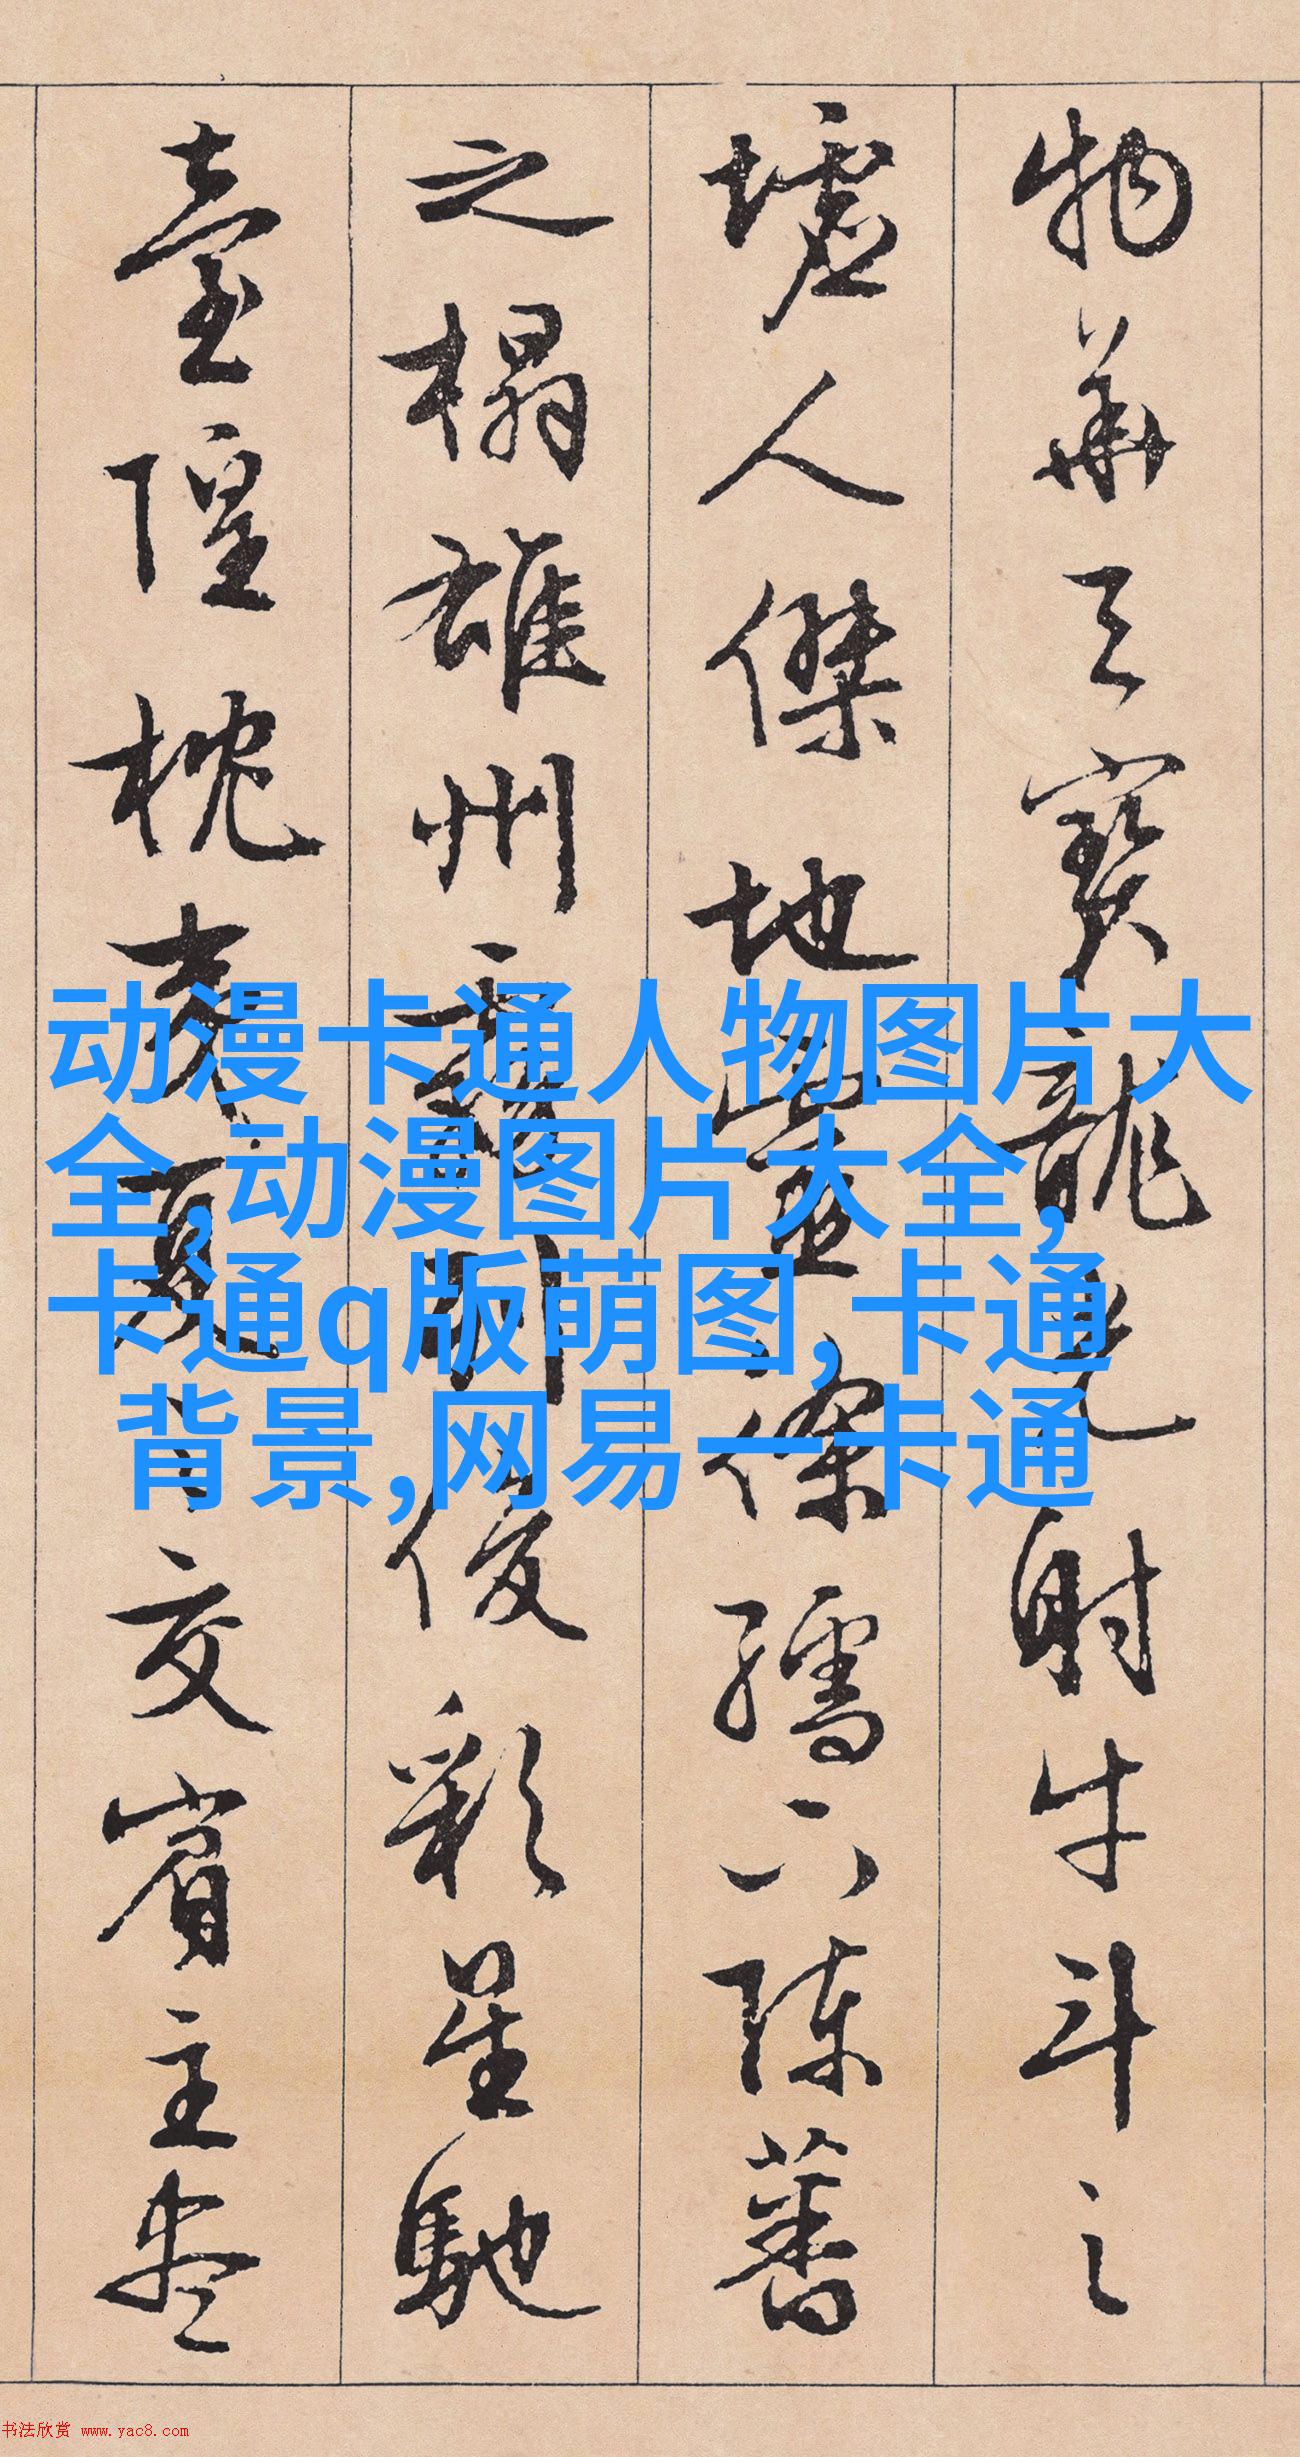 物華天寶龍光射牛斗之
墟人傑地靈徐孺下陳蕃
之榻雄州霧列俊彩星馳
臺隍枕夷夏之交賓主盡
动漫卡通人物图片大
全,动漫图片大全,
卡通q版萌图,卡通
背景,网易一卡通
书法欣赏 www.yac8.com